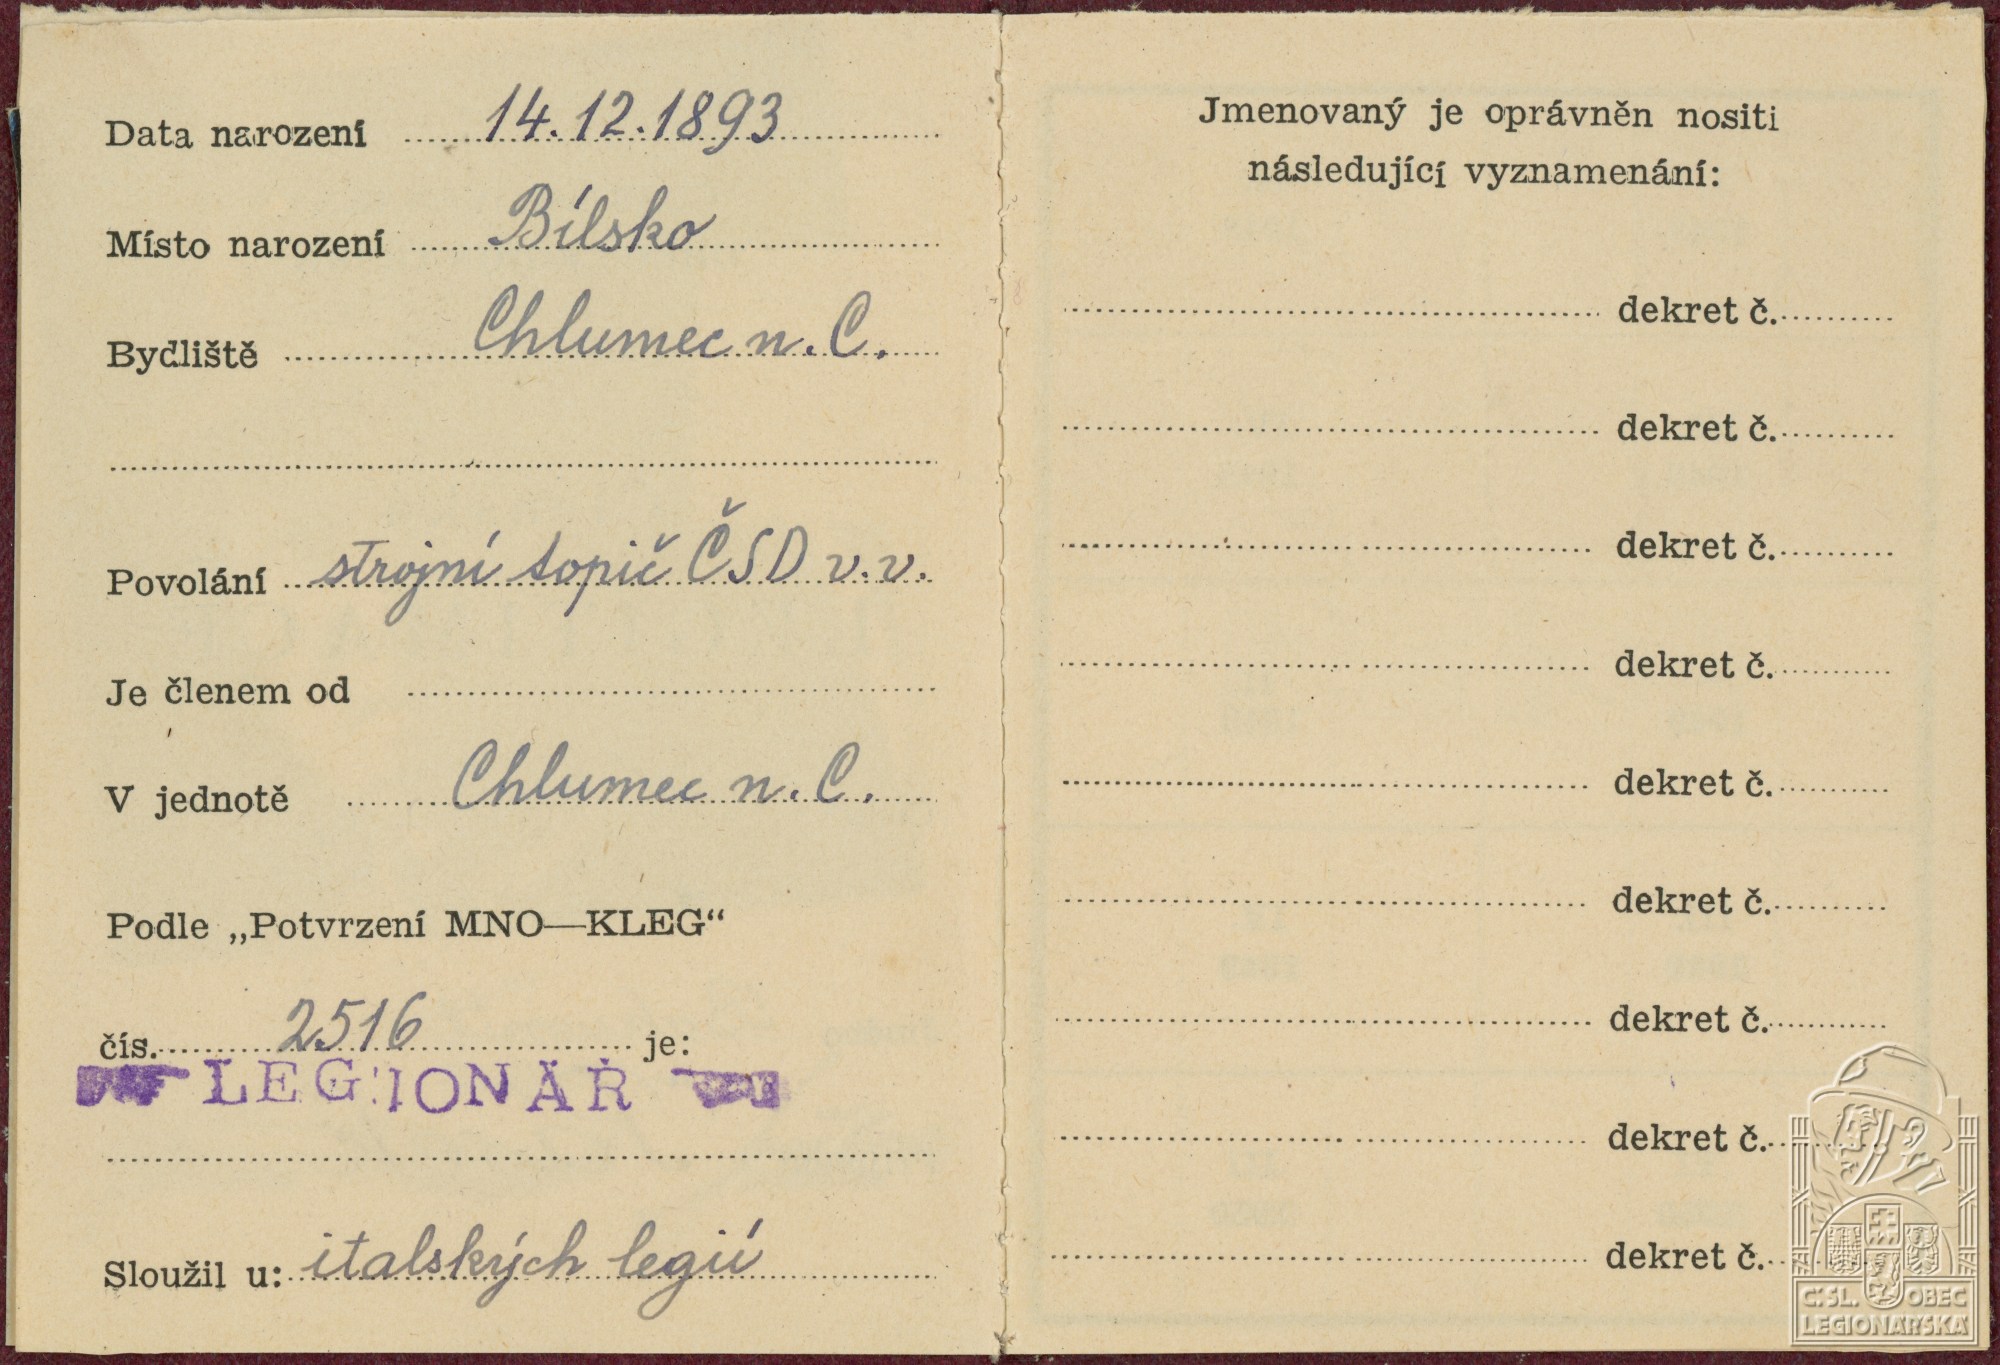 Data narození 14.12.1893
Místo narození Bílsko
Bydliště Chlumec n. C.
Povolání strojní topič ČSD v.v.
Je členem od
V jednotě Chlumec n. C.
Podle „Potvrzení MNO—KLEG“
čís. 2516 je:
LEGIONÁŘ
Sloužil u: italských legií
Jmenovaný je oprávněn nositi
následující vyznamenání:
dekret č.
dekret č.
dekret č.
dekret č.
dekret č.
dekret č.
dekret č.
dekret č.
dekret č.
Č.SL. OBEC
LEGIONÁŘSKÁ